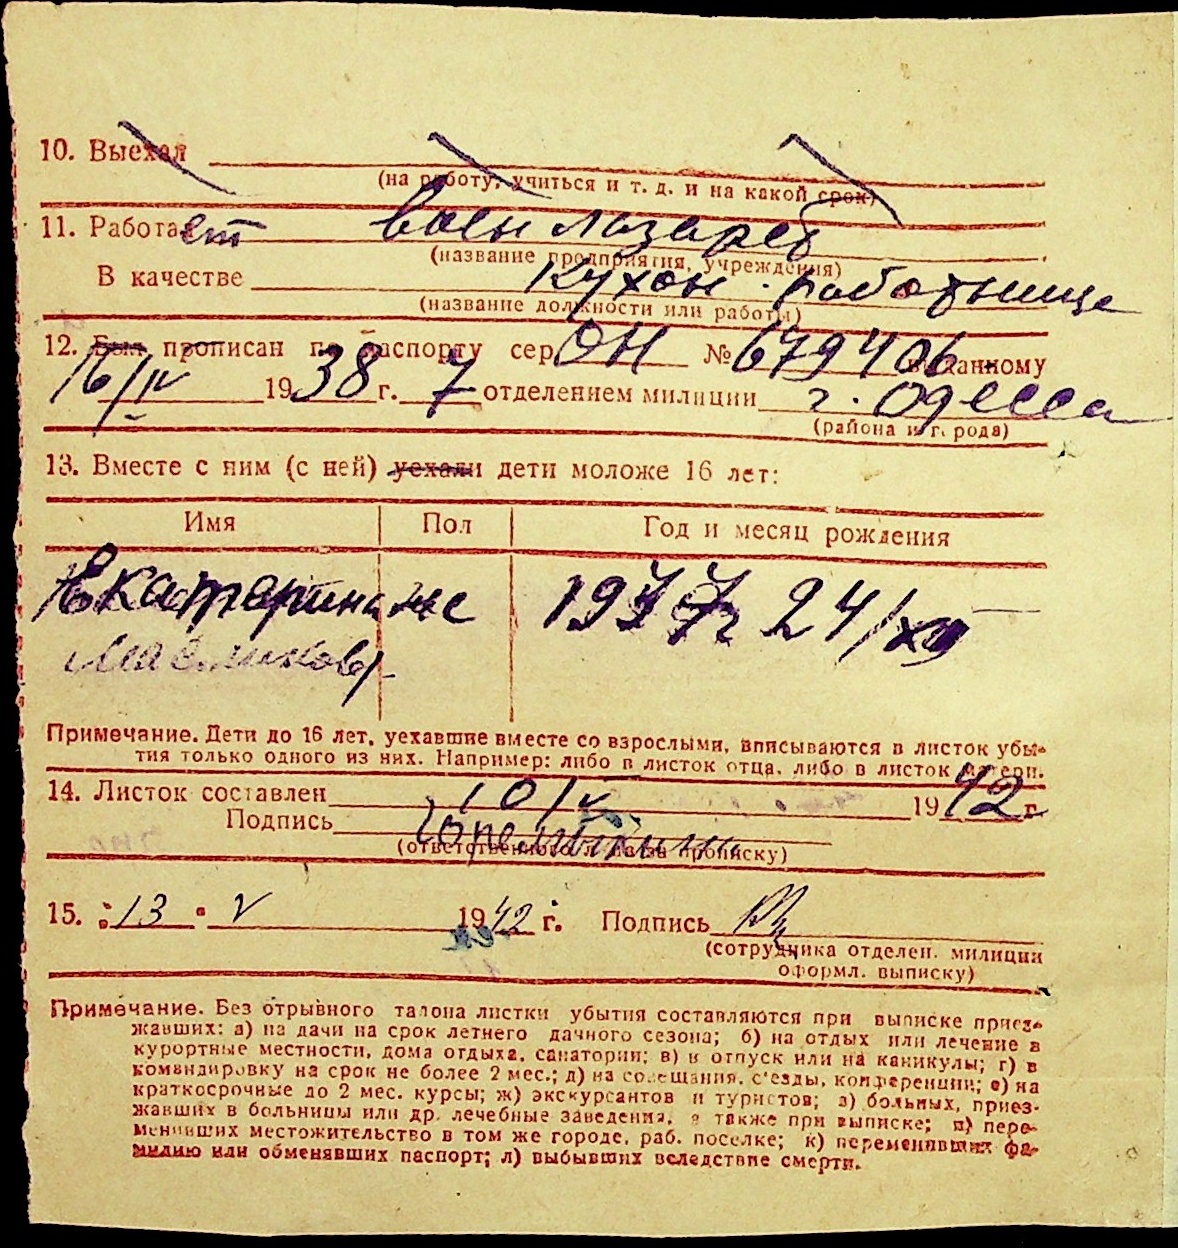 10. Выехал
(на работу, учиться и т. д. и на какой срок)
11. Работает воен лазарет
(название предприятия, учреждения)
В качестве кухон. работница
(название должности или работы)
12. Был прописан по паспорту сер ОН № 679406 выданному
16/IV 1938 г. 7 отделением милиции г. Одесса
(района и города)
13. Вместе с ним (с ней) уехали дети моложе 16 лет:
Имя Пол Год и месяц рождения
Екатерина же 1937г 24/XII
Примечание. Дети до 16 лет, уехавшие вместе со взрослыми, вписываются в листок убы-
тия только одного из них. Например: либо в листок отца, либо в листок матери.
14. Листок составлен 10/V 1942 г.
Подпись
(ответственного лица за прописку)
15. 13. V 1942 г. Подпись
(сотрудника отделен. милиции
оформл. выписку)
Примечание. Без отрывного талона листки убытия составляются при выписке приез-
жавших: а) на дачи на срок летнего дачного сезона; б) на отдых или лечение в
курортные местности, дома отдыха, санатории; в) в отпуск или на каникулы; г) в
командировку на срок не более 2 мес.; д) на совещания, с'езды, конференции; е) на
краткосрочные до 2 мес. курсы; ж) экскурсантов и туристов; з) больных, приез-
жавших в больницы или др. лечебные заведения, а также при выписке; и) пере-
менивших местожительство в том же городе, раб. поселке; к) переменивших фа-
милию или обменявших паспорт; л) выбывших вследствие смерти.